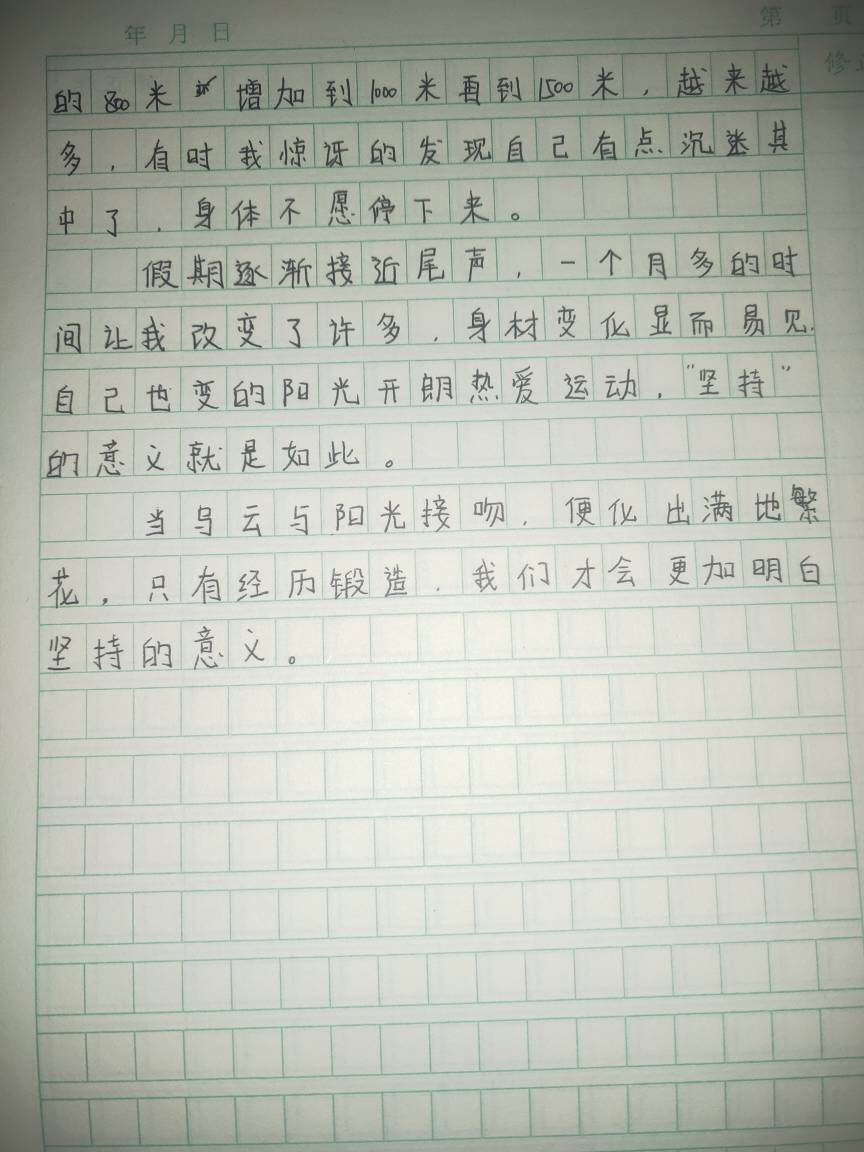 年 月 日
第 页
修
的800米增加到1000米再到1500米，越来越
多，有时我惊讶的发现自己有点沉迷其
中了，身体不愿停下来。
假期逐渐接近尾声，一个月多的时
间让我改变了许多，身材变化显而易见.
自己也变的阳光开朗热爱运动，“坚持”
的意义就是如此。
当乌云与阳光接吻，便化出满地繁
花，只有经历锻造，我们才会更加明白
坚持的意义。